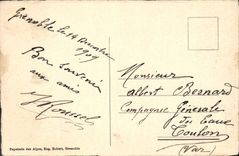 Grenoble le 14 Décembre
1919
Bon Souvenir
aux amis
Monsieur
Albert Bernard
Compagnie Générale
des Eaux
Toulon
(Var)
Papeterie des Alpes, Eug. Robert, Grenoble